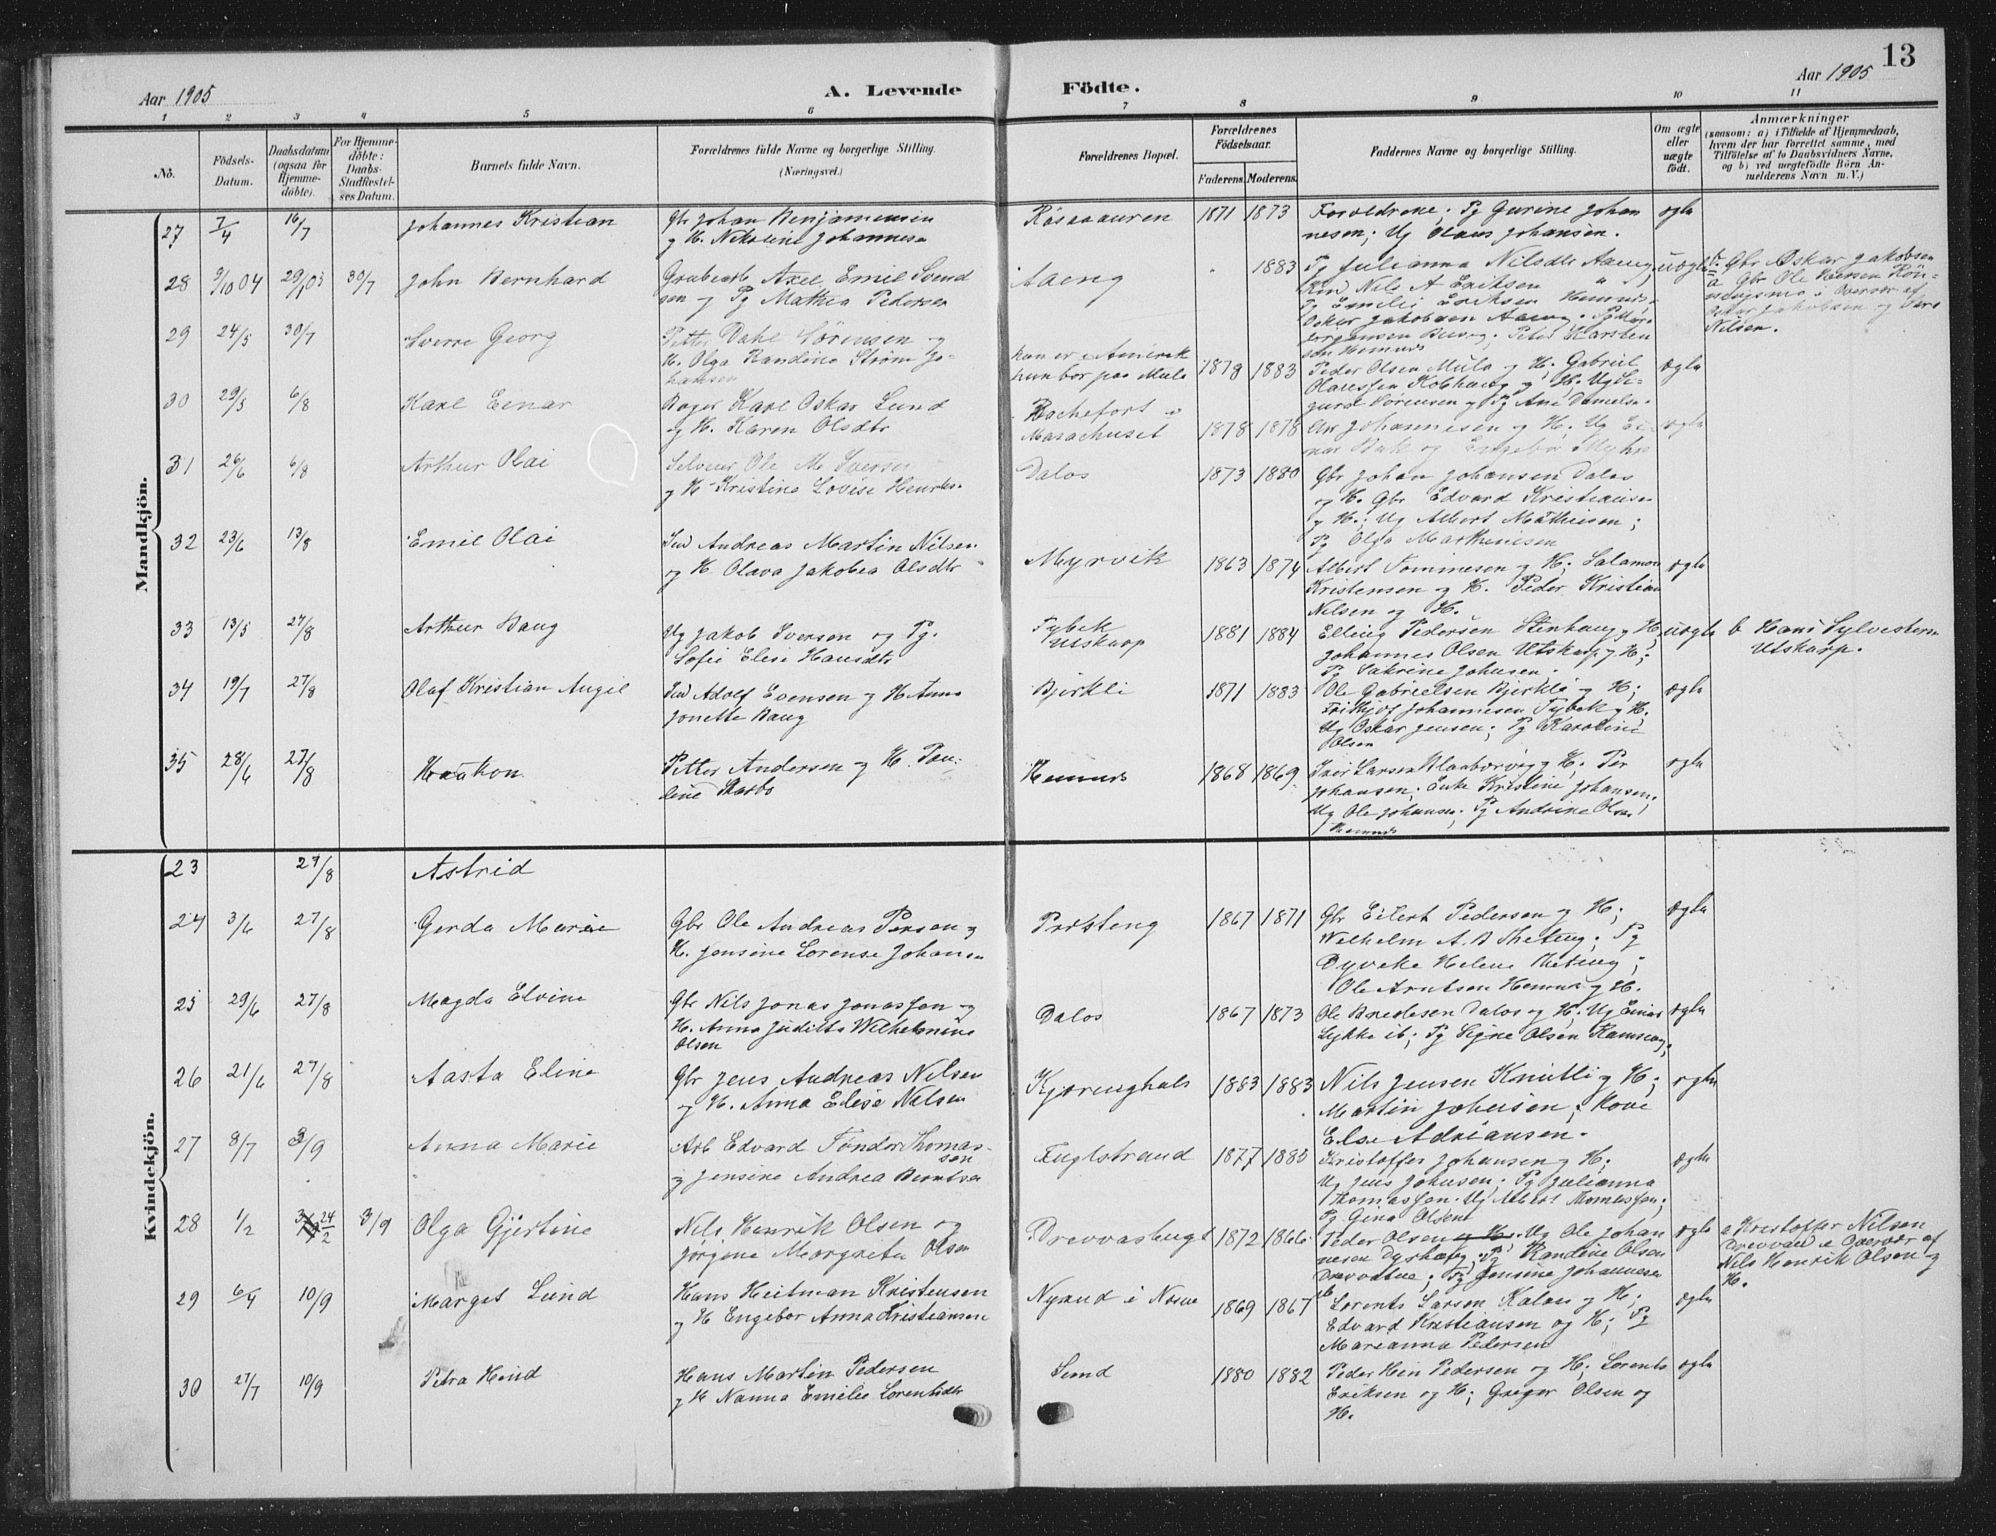 13
Aar 1905
A. Levende
Födte.
Aar 1905
1 2 3 4 5 6 7 8 9 10 11
No.
Födsels-
Datum.
Daabsdatum
(ogsaa for
Hjemme-
döbte).
For Hjemme-
döbte:
Daabs-
Stadfæstel-
ses Datum.
Barnets fulde Navn.
Forældrenes fulde Navne og borgerlige Stilling.
(Næringsvei.)
Forældrenes Bopæl.
Forældrenes
Födselsaar.
Faderens. Moderens.
Faddernes Navne og borgerlige Stilling.
Om ægte
eller
uægte
födt.
Anmærkninger
(saasom: a) i Tilfælde af Hjemmedaab,
hvem der har forrettet samme, med
Tilföielse af to Daabsvidners Navne,
og b) ved uægtefödte Börn An-
melderens Navn m. V.)
Mandkjön.
27 7/4 16/7 Johannes Kristian
Gbr Johan Benjaminsen
og H. Nikoline Johannes
Røsaaauren 1871 1873
Forældrene; Pg Gurine Johan
nesen; Ug Olaus Johansen.
ægte
28 9/10 04 29/1 05 30/7 John Bernhard
Grubearb Axel Emil Svend
sen og Pg Mathea Pedersen
Aaeng 1883
Pg Julianna Nilsdtr Aaeng
Nils A Eriksen
Pg Emelie Eriksen Hemnes
Oskar Jakobsen Aaeng. Pg
Jørgensen; Peder Karsten
sen Hemnes
uægte
b Gbr Oskar Jakobsen
a Gbr Ole Iversen
i Overvær af
Oskar Jakobsen og
Nilsen.
29 24/5 30/7 Sverre Georg
Petter Dahl Sørensen og
H. Olga Randine Strøm Jo-
hansen
han er i Amerik
hun bor paa Mula
1879 1883
Peder Olsen Mula og H. Gabriel
Olaussen Kobhaug og H. Ug Si-
gurd Sørensen og Pg Ane Daniels.
ægte
30 29/3 6/8 Karl Einar
Bager Karl Oskar Lund
og H. Karen Olsdtr
Rochefort
Masachuset
1878 1878
Johannesen og H. Ug Ei-
nar Bak og Engebor
ægte
31 26/6 6/8 Arthur Olai
Selveier Ole M Iversen
og H Kristine Lovise Henriks.
Dalos 1873 1880
Gbr Johan Johansen Dalos
og H. Gbr Edvard Kristianse
og H.; Ug Albert Mathisen;
Pg Olga Marthinsen
32 23/6 13/8 Emil Olai
Ind Andreas Martin Nilsen
og H Olava Jakobea Olsdtr
Myrvik 1863 1874
Albert Tommesen og H; Salamon
Kristensen og H. Peder Kristian
Nilsen og H.
ægte
33 13/5 27/8 Arthur Baug
Ug Jakob Iversen og Pg.
Sofie Elise Hansdtr
Fybek
Utskarp
1881 1884
Elling Pedersen Stenhaug og H,
Johannes Olsen Utskarp og H;
Pg Sakrine Johnsen.
uægte
b Hans Sylvestersen
Utskarp.
34 19/7 27/8 Olaf Kristian Angel
Ind Adolf Evensen og H Anna
Jonette Baug
Bjerkli 1871 1883
Ole Gabrielsen Bjerkli og H;
Frithjof Johannesen Fybek og H.
Ug Oskar Jensen; Pg Karoline
Olsen
ægte
35 28/6 27/8 Haakon
Petter Andersen og H Pau-
line Skarbo
Hemnes 1868 1869
Iver Larsen Klaaborvig og H; Per
Johansen; Enke Kristine Johansen;
Ug Ole Johansen; Pg Andrine Olsen
Hemnes
ægte
Kvindekjön.
23 27/8 Astrid
24 3/6 27/8 Gerda Marie
Gbr Ole Andreas Persen og
H. Jensine Lorense Johans
Præsteng 1867 1871
Gbr Eilert Pedersen og H;
Wilhelm A. B Theting; Pg
Dyveke Helene Theting;
Ole Arntsen Hemnes og H.
ægte
25 29/6 27/8 Magda Elvine
Gbr Nils Jonas Jonassen og
H. Anna Juditte Wilhelmine
Olsen
Dalos 1867 1873
Ole Bredesen Dalos og H; Ug Einar
Lykke ib; Pg Signe Olsen Kamseng;
ægte
26 21/6 27/8 Aasta Eline
Gbr Jens Andreas Nilsen
og H. Anna Elese Nilsen
Kjæringhals 1883 1883
Nils Jensen Knutli og H;
Martin Johnsen; Kone
Else Adriansen.
ægte
27 8/7 3/9 Anna Marie
Arb Edvard Tønder Thomas-
sen
og Jensine Andrea Berntsen
Fuglstrand 1877 1880
Kristoffer Johansen og H;
Ug Jens Johnsen; Pg Julianna
Thomassen. Ug Albert Thomassen;
Pg Gina Olsen
ægte
28 1/2 24/2 3/9 Olga Gjertine
Nils Henrik Olsen og
Jørgene Margrete Olsen
Drevvashugt 1872 1866
Peder Olsen og H. Ug Ole Johan
nesen Dyrhaug; Pg Randine Olsen
Drevvatne; Pg Jensine Johannesen
ib
ægte
a Kristoffer Nilsen
Drevvand i Overvær af
Nils Henrik Olsen og
H.
29 6/4 10/9 Margot Lund
Hans Heitman Kristensen
og H Engebor Anna Kristiansen
Nyrud i Nesne 1869 1867
Lorents Larsen Kalaas og H;
Edvard Kristiansen og H; Pg
Marianna Pedersen
ægte
30 27/7 10/9 Petra Hind
Hans Martin Pedersen
og H Nanna Emilie Lorentsdtr
Sund 1880 1882
Peder Hein Pedersen og H; Lorents
Eriksen og H; Greger Olsen og
H.
ægte